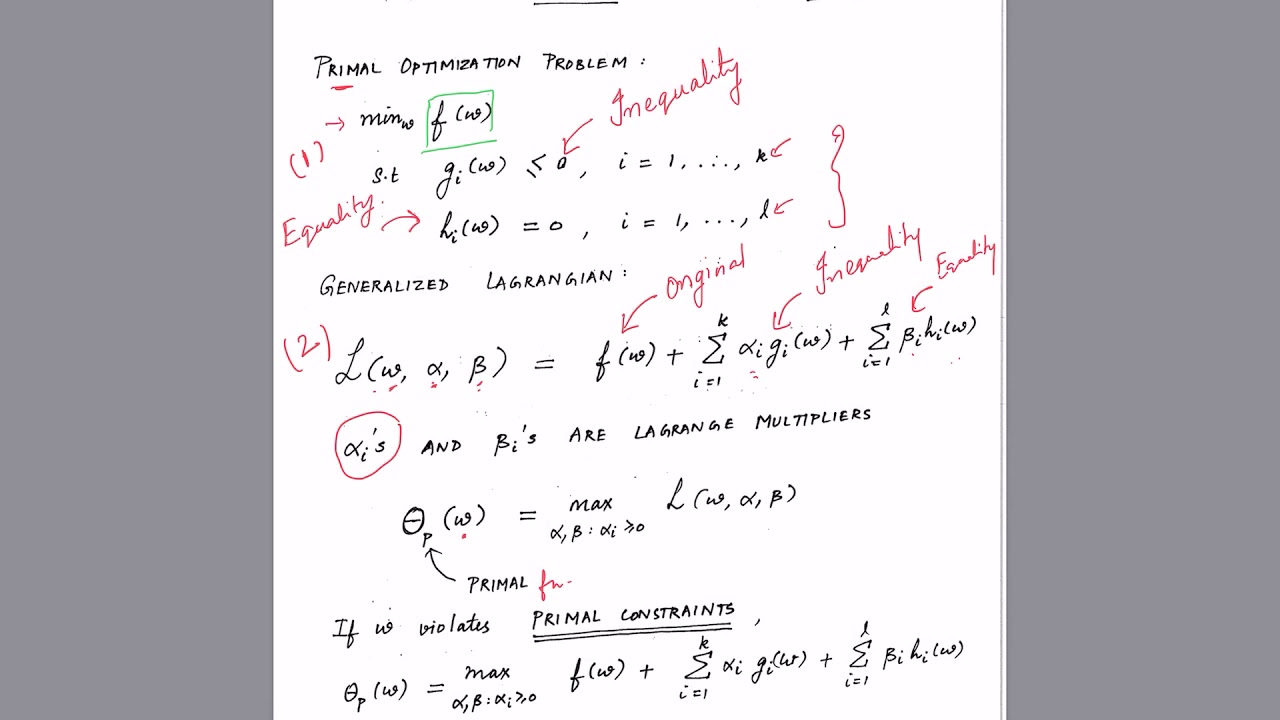 PRIMAL OPTIMIZATION PROBLEM :
→ min_w f(w)
Inequality
(1)
s.t g_i(w) ≤ 0 , i = 1, ..., k
Equality.
h_i(w) = 0 , i = 1, ..., l
GENERALIZED LAGRANGIAN :
Original
Inequality
Equality
(2) L(w, α, β) = f(w) + Σ_{i=1}^{k} α_i g_i(w) + Σ_{i=1}^{l} β_i h_i(w)
α_i's AND β_i's ARE LAGRANGE MULTIPLIERS
Θ_p(w) = max_{α,β : α_i ≥ 0} L(w, α, β)
PRIMAL fn.
If w violates PRIMAL CONSTRAINTS ,
Θ_p(w) = max_{α,β : α_i ≥ 0} f(w) + Σ_{i=1}^{k} α_i g_i(w) + Σ_{i=1}^{l} β_i h_i(w)